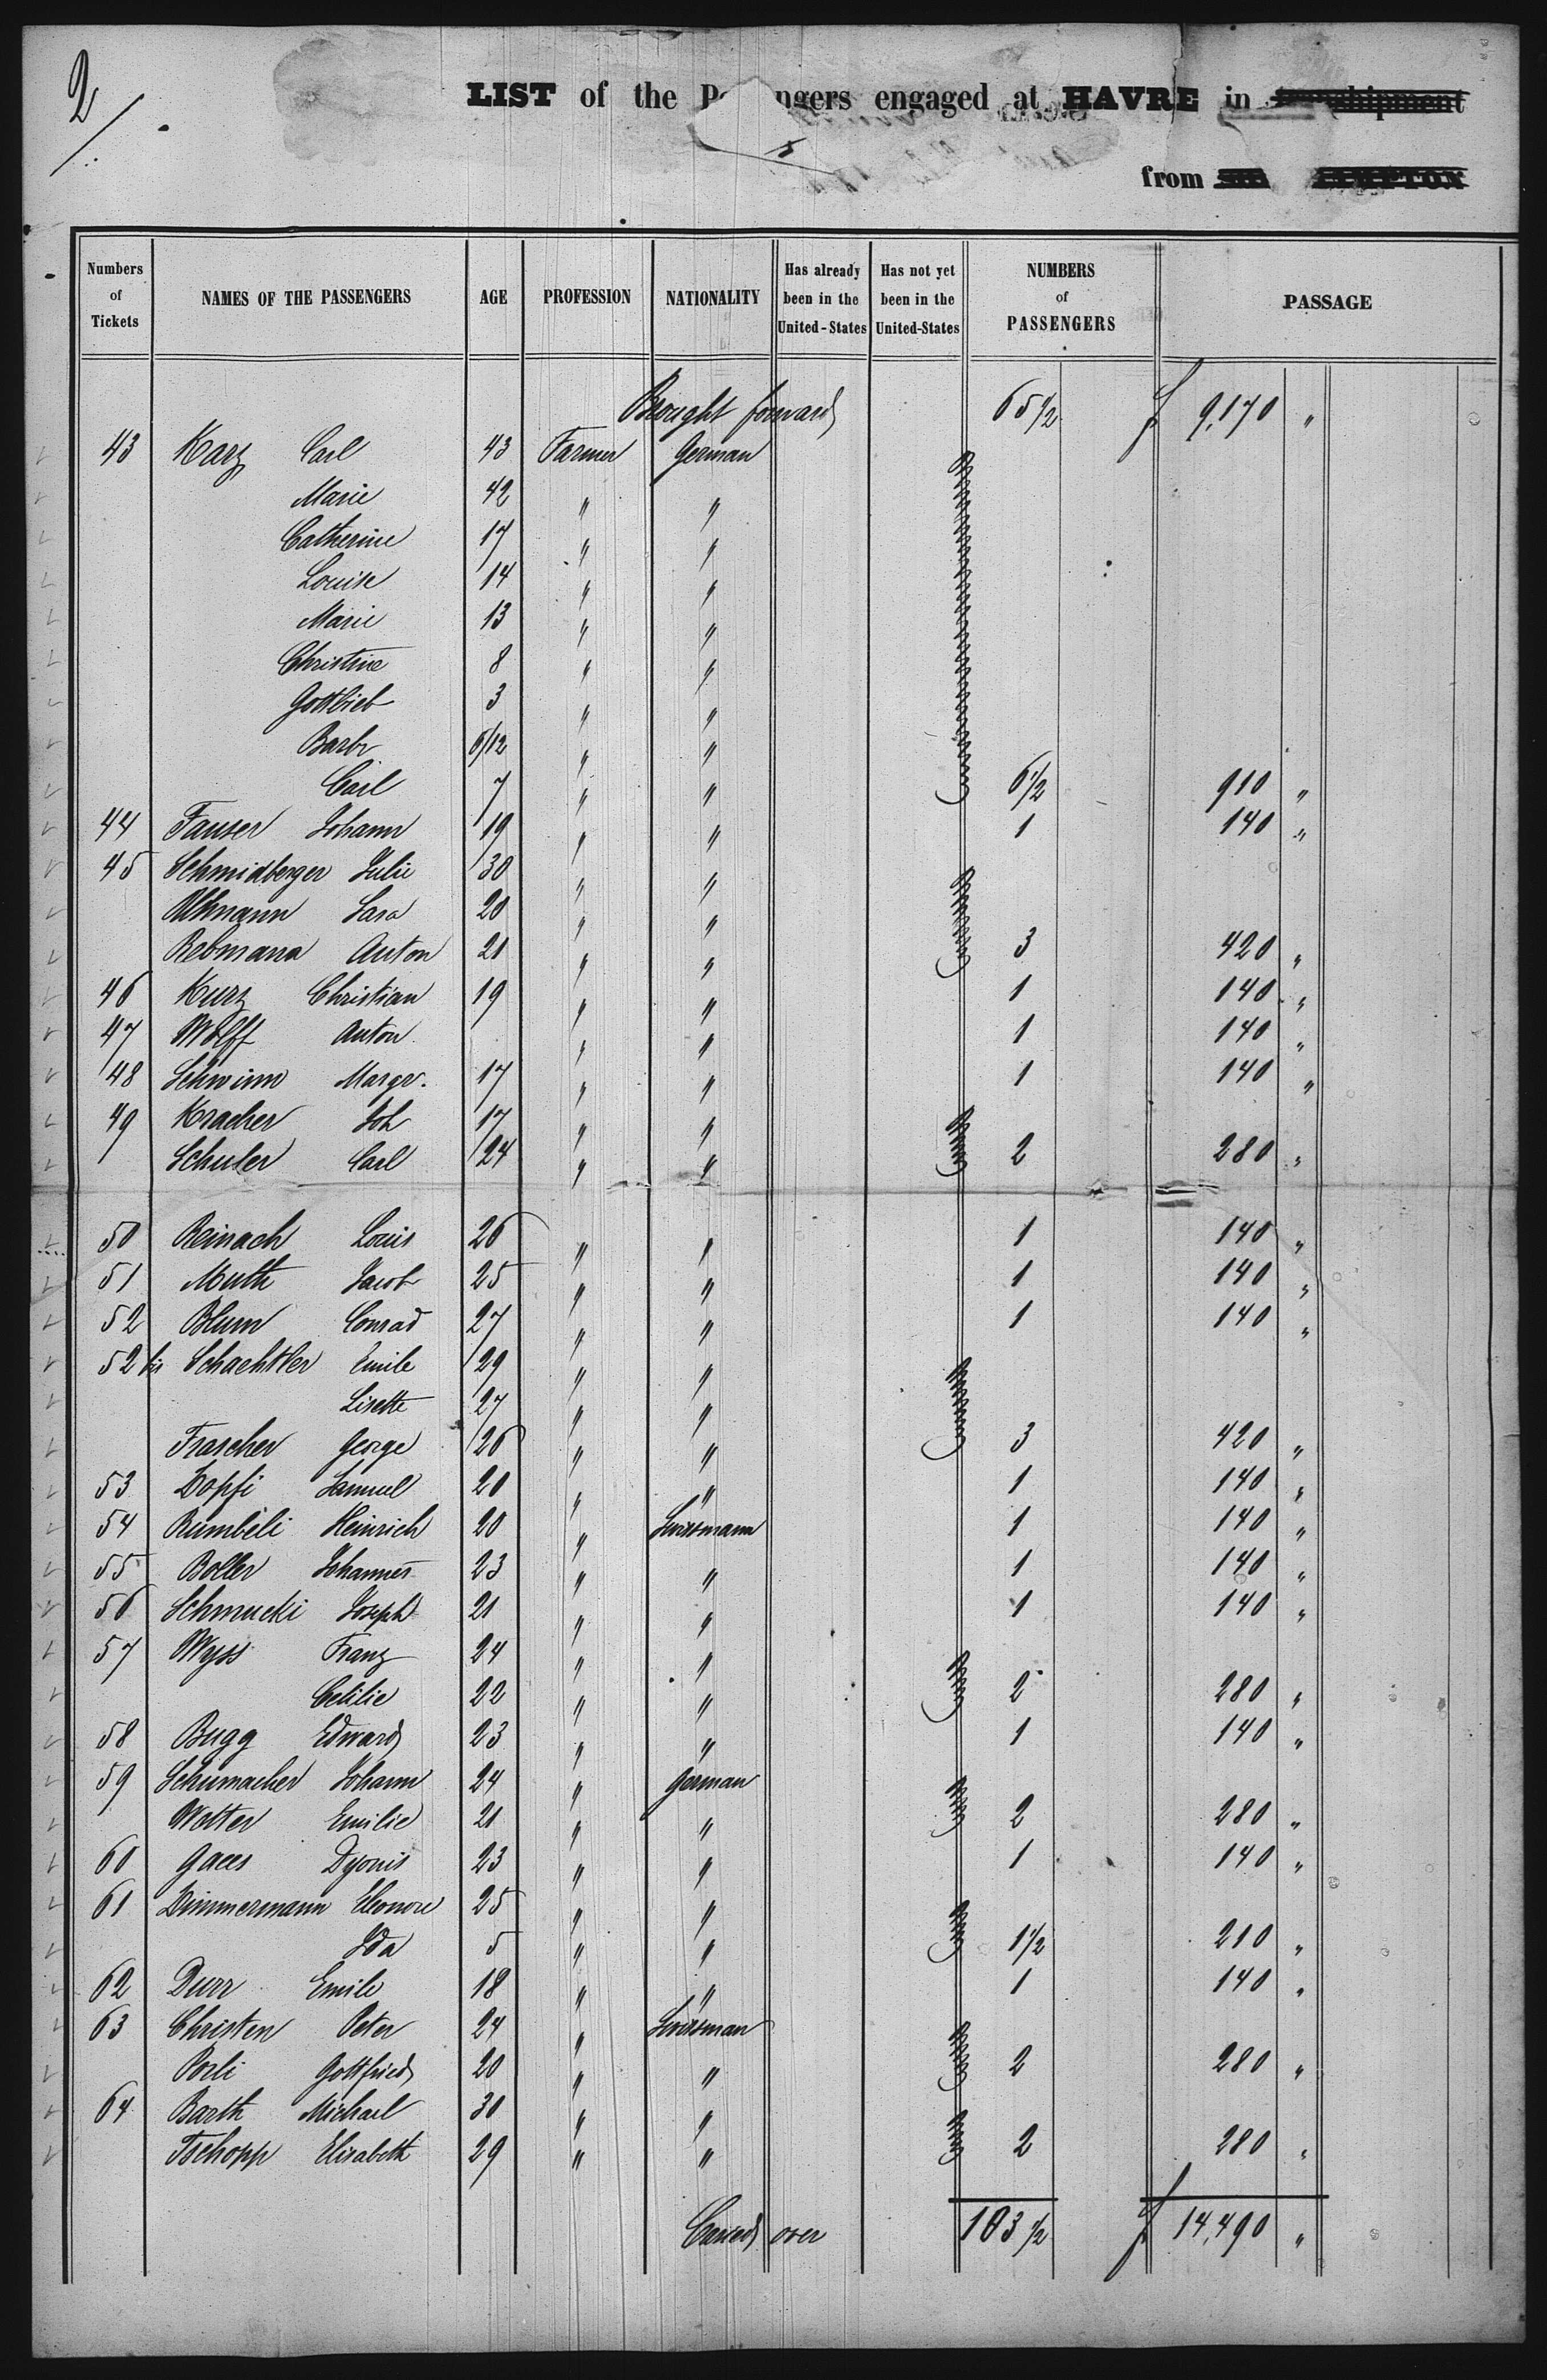 2
LIST of the Passengers engaged at HAVRE in
from
Numbers of Tickets NAMES OF THE PASSENGERS AGE PROFESSION NATIONALITY Has already been in the United-States Has not yet been in the United-States NUMBERS of PASSENGERS PASSAGE
Brought forward 65 1/2 f 9,170 "
43 Karz Carl 43 Farmer German
Marie 42 " "
Catherine 17 " "
Louise 14 " "
Marie 13 " "
Christine 8 " "
Gottlieb 3 " "
Barbr 6/12 " "
Carl 7 " " 6 1/2 910 "
44 Fauser Johann 19 " " 1 140 "
45 Schmidberger Julie 30 " "
Altmann Sara 20 " "
Rebmann Anton 21 " " 3 420 "
46 Kurz Christian 19 " " 1 140 "
47 Wolff Anton " " 1 140 "
48 Schwinn Margr. 17 " " 1 140 "
49 Kracher Joh 17 " "
Schuler Carl 24 " " 2 280 "
50 Reinach Louis 26 " " 1 140 "
51 Muth Jacob 25 " " 1 140 "
52 Blum Conrad 27 " " 1 140 "
52 bis Schachtler Emile 29 " "
Lisette 27 " "
Frascher George 26 " " 3 420 "
53 Zopfi Samuel 20 " " 1 140 "
54 Rümbeli Heinrich 20 " Swissmann 1 140 "
55 Boller Johannes 23 " " 1 140 "
56 Schmucki Joseph 21 " " 1 140 "
57 Wyss Franz 24 " "
Celilie 22 " " 2 280 "
58 Bugg Edward 23 " " 1 140 "
59 Schumacher Johann 24 " German
Wetter Emilie 21 " " 2 280 "
60 Gaees Dyonis 23 " " 1 140 "
61 Zimmermann Eleonore 25 " "
Ida 5 " " 1 1/2 210 "
62 Durr Emile 18 " " 1 140 "
63 Christen Peter 24 " Swissman
Gottfried 20 " " 2 280 "
64 Barth Michael 30 " "
Tschopp Elisabeth 29 " " 2 280 "
Carried over 103 1/2 f 14,490 "